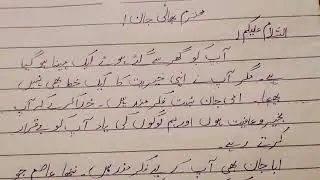 محترم بھائی جان!
السلام علیکم!
آپ کو گھر سے گئے ہوئے ایک مہینا ہو گیا
ہے۔ مگر آپ نے اپنی خیریت کا ایک خط بھی نہیں
بھیجا۔ امی جان بہت فکر مند ہیں۔ خدا کرے کہ آپ
بخیر و عافیت ہوں اور ہم لوگوں کی یاد آپ کو بے قرار
کرتی رہے۔
ابا جان بھی آپ کے لیے فکر مند ہیں۔ ننھا عاصم جو